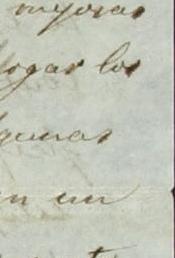 mejoras
logar los
lgunas
en un